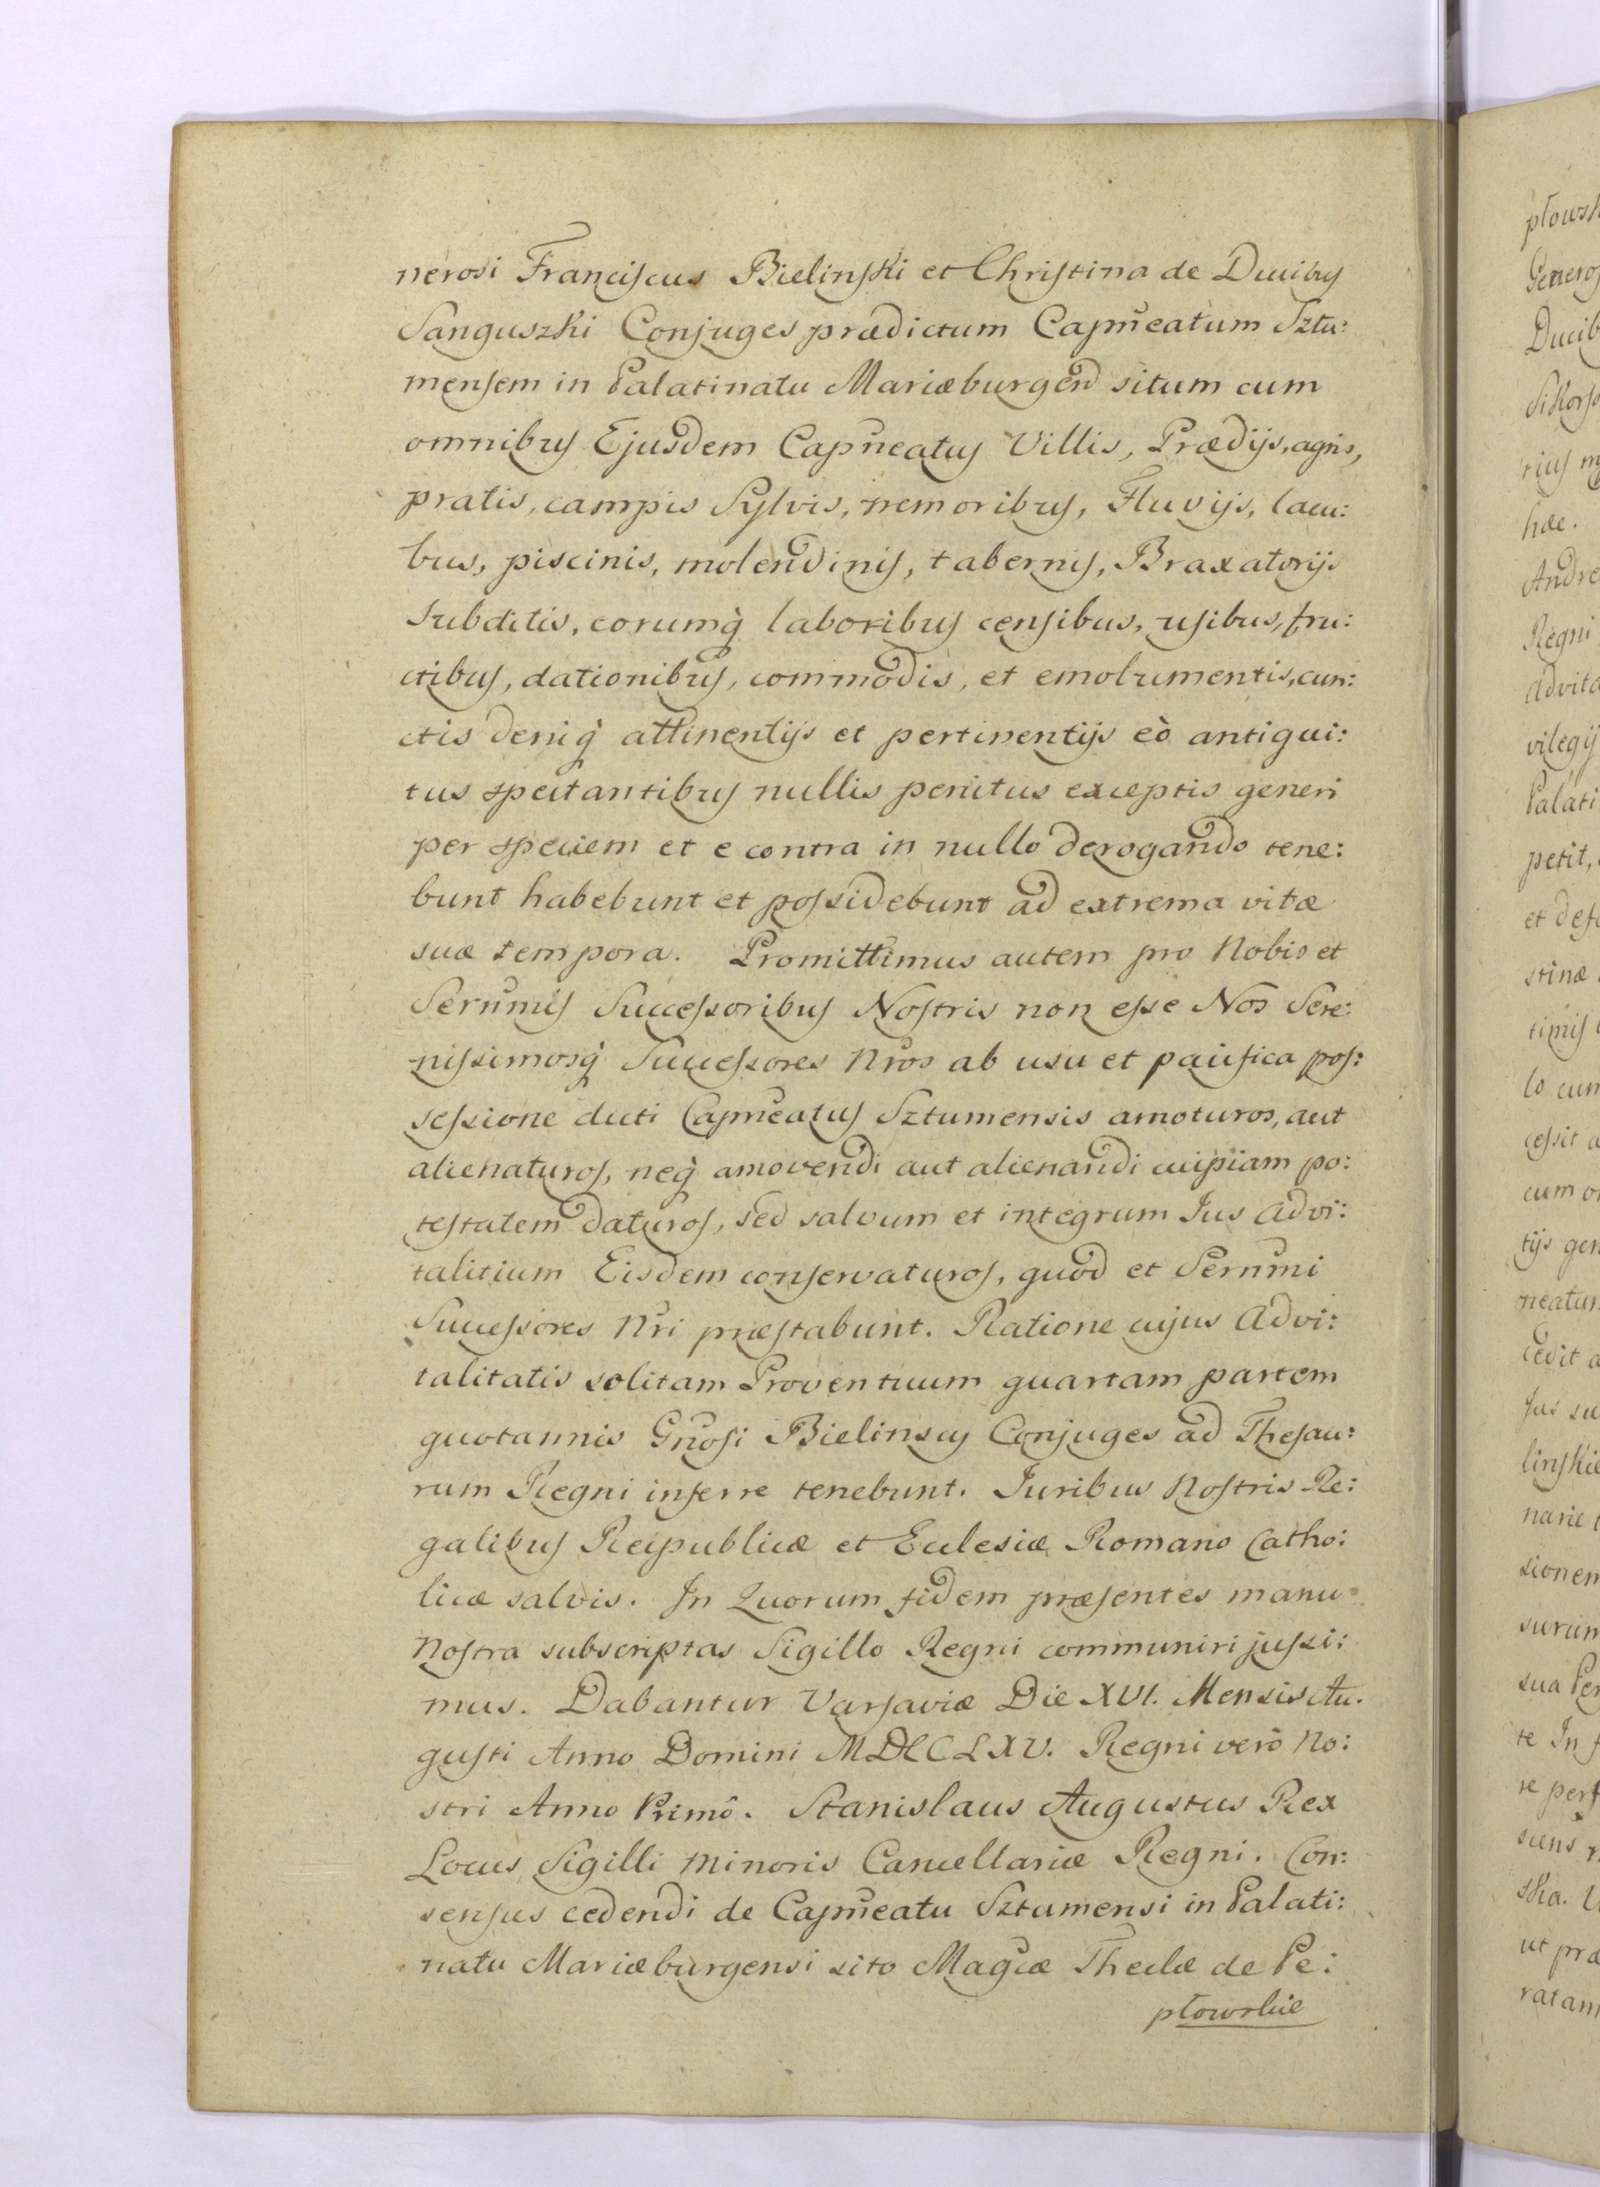 nerosi Franciscus Bielinski et Christina de Ducibus
Sanguszki Conjuges prædictum Capñeatum Sztu:
mensem in Palatinatu Mariæburgen̄ situm cum
omnibus Ejusdem Capñeatus Villis, Prædijs, agris,
pratis, campis Sylvis, nemoribus, Fluvijs, lacu:
bus, piscinis, molendinis, tabernis, Braxatorijs
Subditis, eorumq̀ laboribus censibus, usibus, fru:
ctibus, dationibus, commodis, et emolumentis, cun:
ctis deniq̀ attinentijs et pertinentijs eò antiqui:
tus spectantibus nullis penitus exceptis generi
per speciem et e contra in nullo derogando tene:
bunt habebunt et possidebunt ad extrema vitæ
suæ tempora. Promittimus autem pro Nobis et
Serūmis Successoribus Nostris non esse Nos Sere:
nissimosq̀ Successores Nr̃os ab usu et pacifica pos:
sessione dicti Capñeatus Sztumensis amoturos, aut
alienaturos, neq̀ amovendi aut alienandi cuipiam po:
testatem daturos, sed salvum et integrum Jus Advi:
talitium Eisdem conservaturos, quod et Serūmi
Successores Nr̃i præstabunt. Ratione cujus Advi:
talitatis solitam Proventuum quartam partem
quotannis Gñosi Bielinscy Conjuges ad Thesau:
rum Regni inferre tenebunt. Juribus Nostris Re:
galibus Reipublicæ et Ecclesiæ Romano Catho:
licæ salvis. In Quorum fidem præsentes manu
Nostra subscriptas Sigillo Regni communiri jussi:
mus. Dabantur Varsaviæ Die XVI. Mensis Au.
gusti Anno Domini MDCCLXV. Regni verò No:
stri Anno Primô. Stanislaus Augustus Rex
Locus Sigilli Minoris Cancellariæ Regni. Con:
sensus cedendi de Capñeatu Sztumensi in Palati:
natu Mariæburgensi sito Magcæ Theclæ de Pe:
płowskie